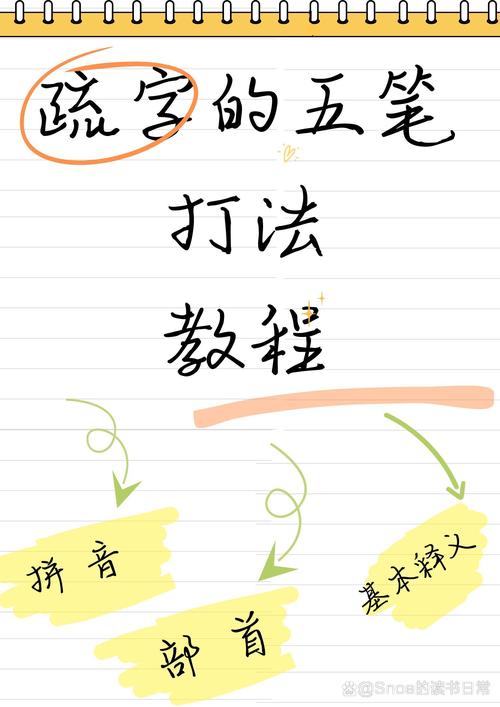 疏字的五笔
打法
教程
拼音
部首
基本释义
@Snoa的读书日常